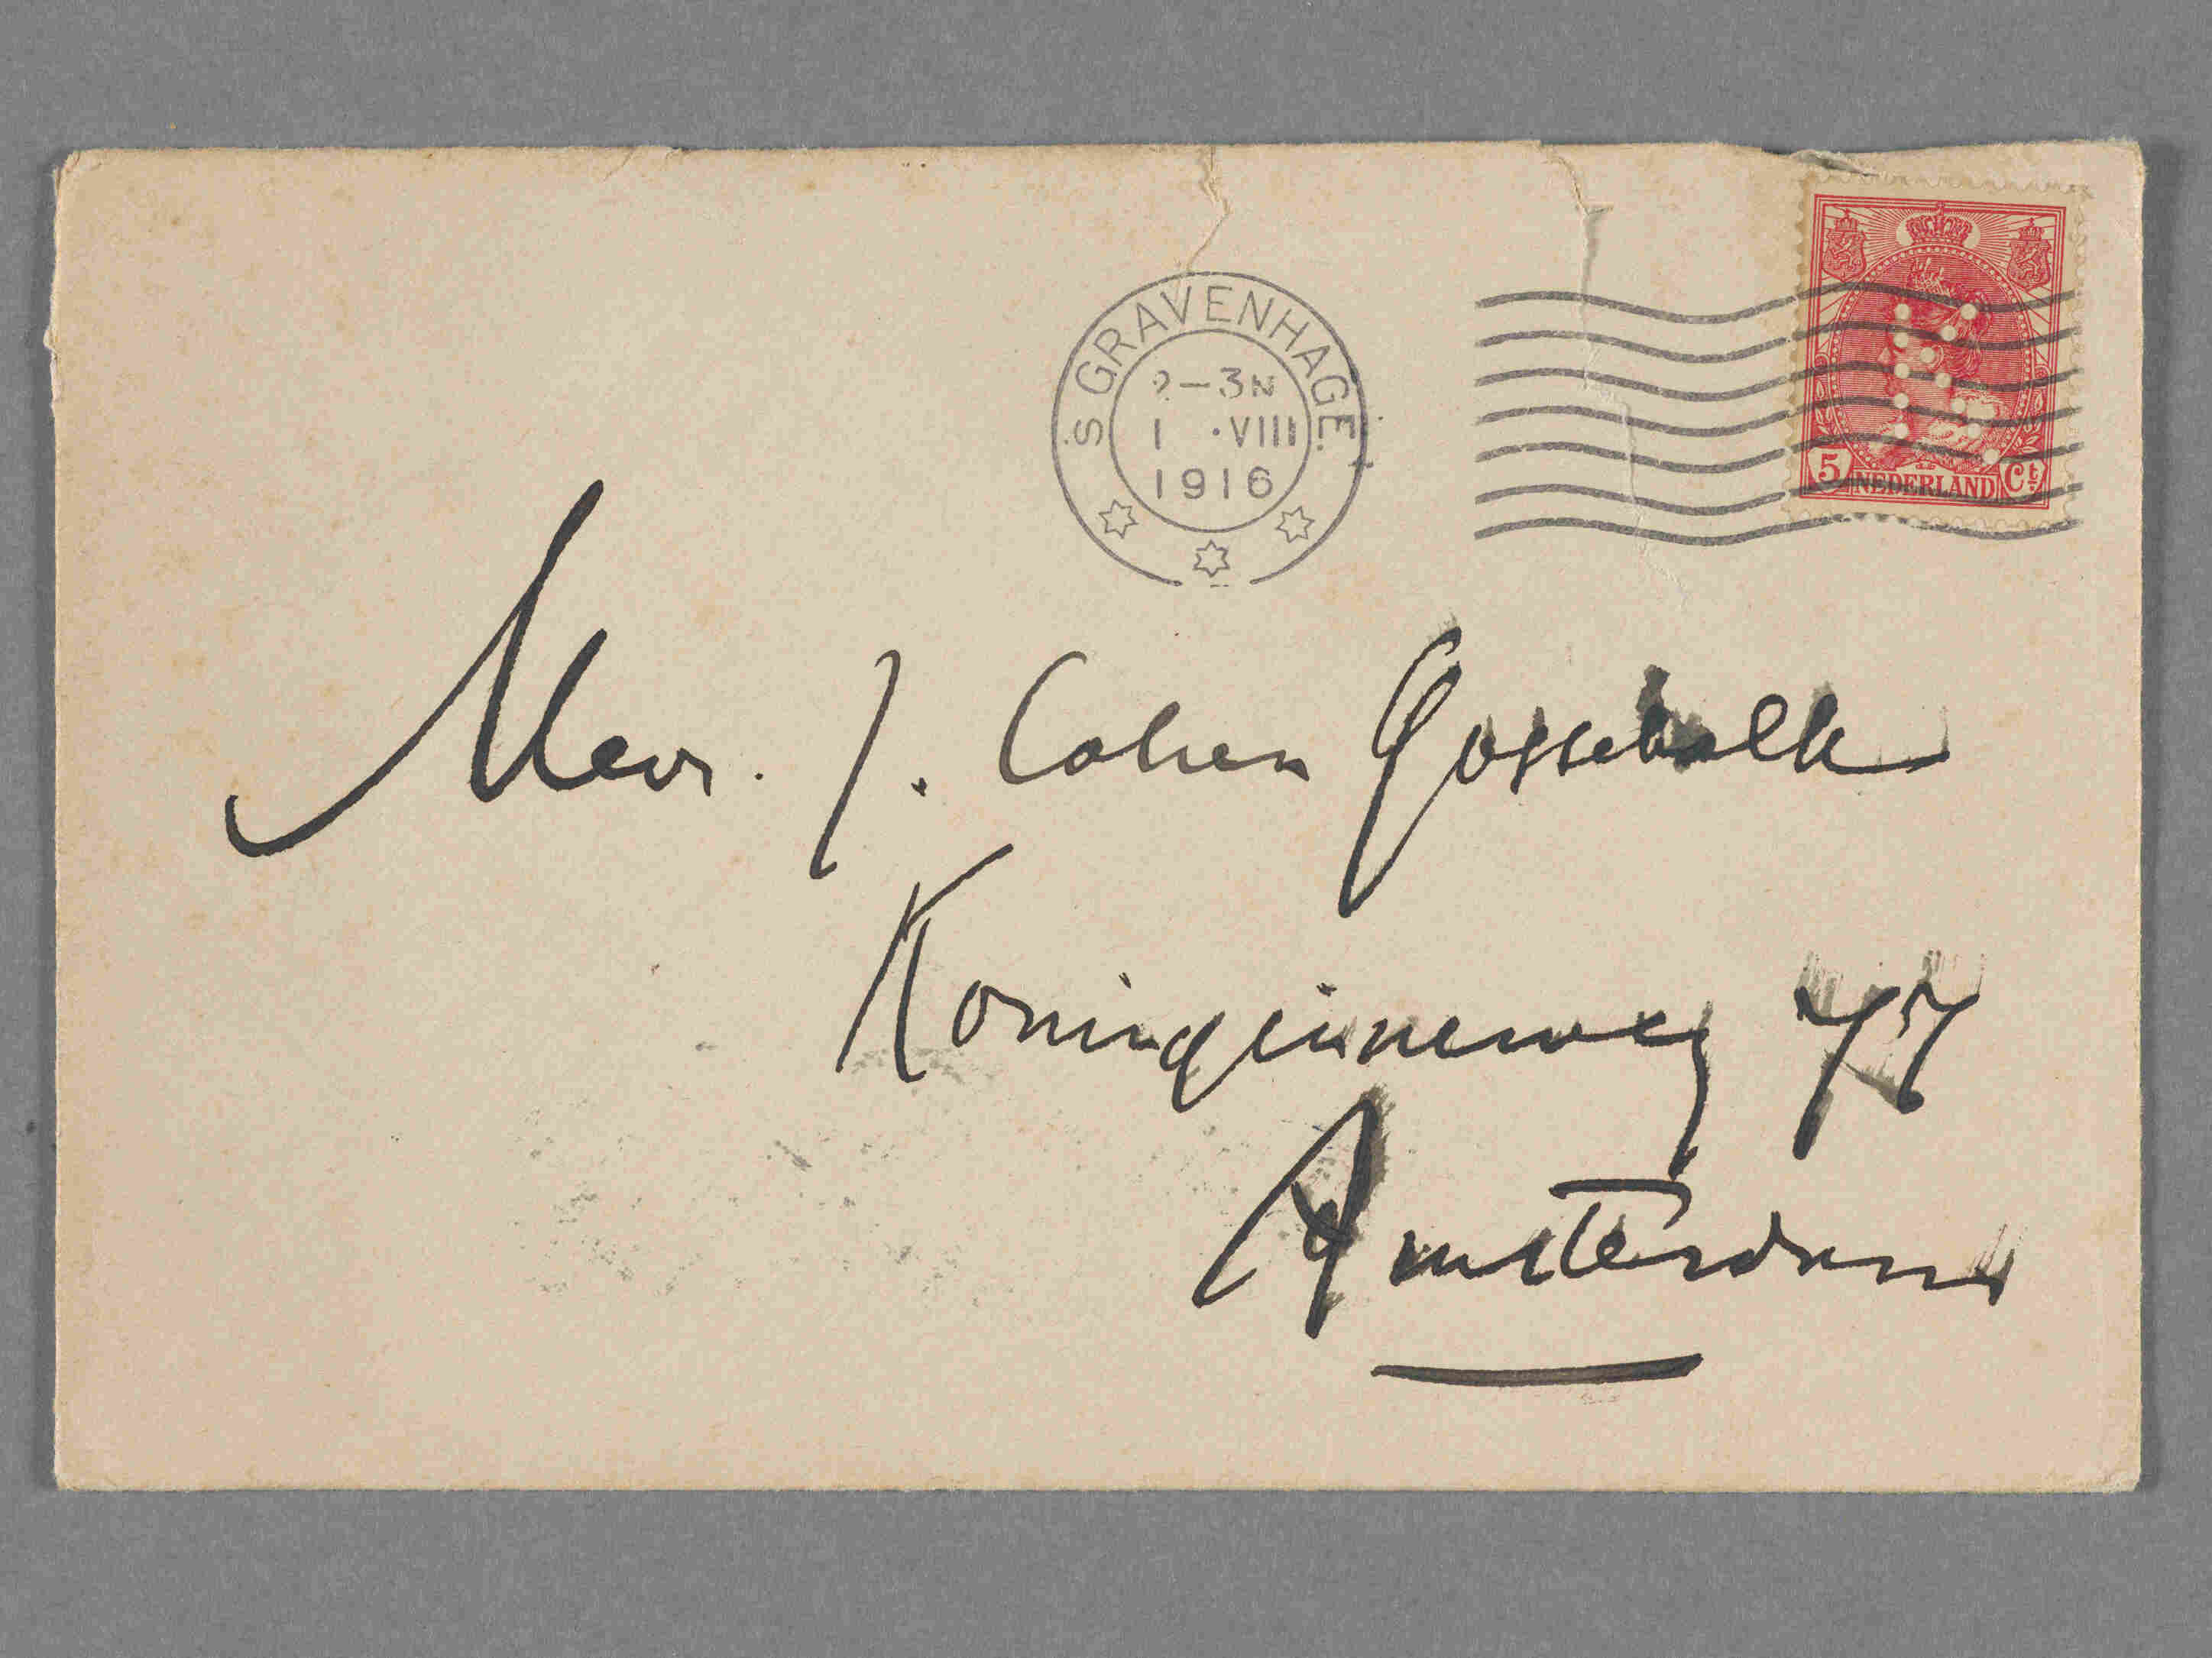 S GRAVENHAGE
2-3N
1 .VIII
1916
5 NEDERLAND Ct
Mevr. J. Cohen Gosschalk
Koninginneweg 77
Amsterdam